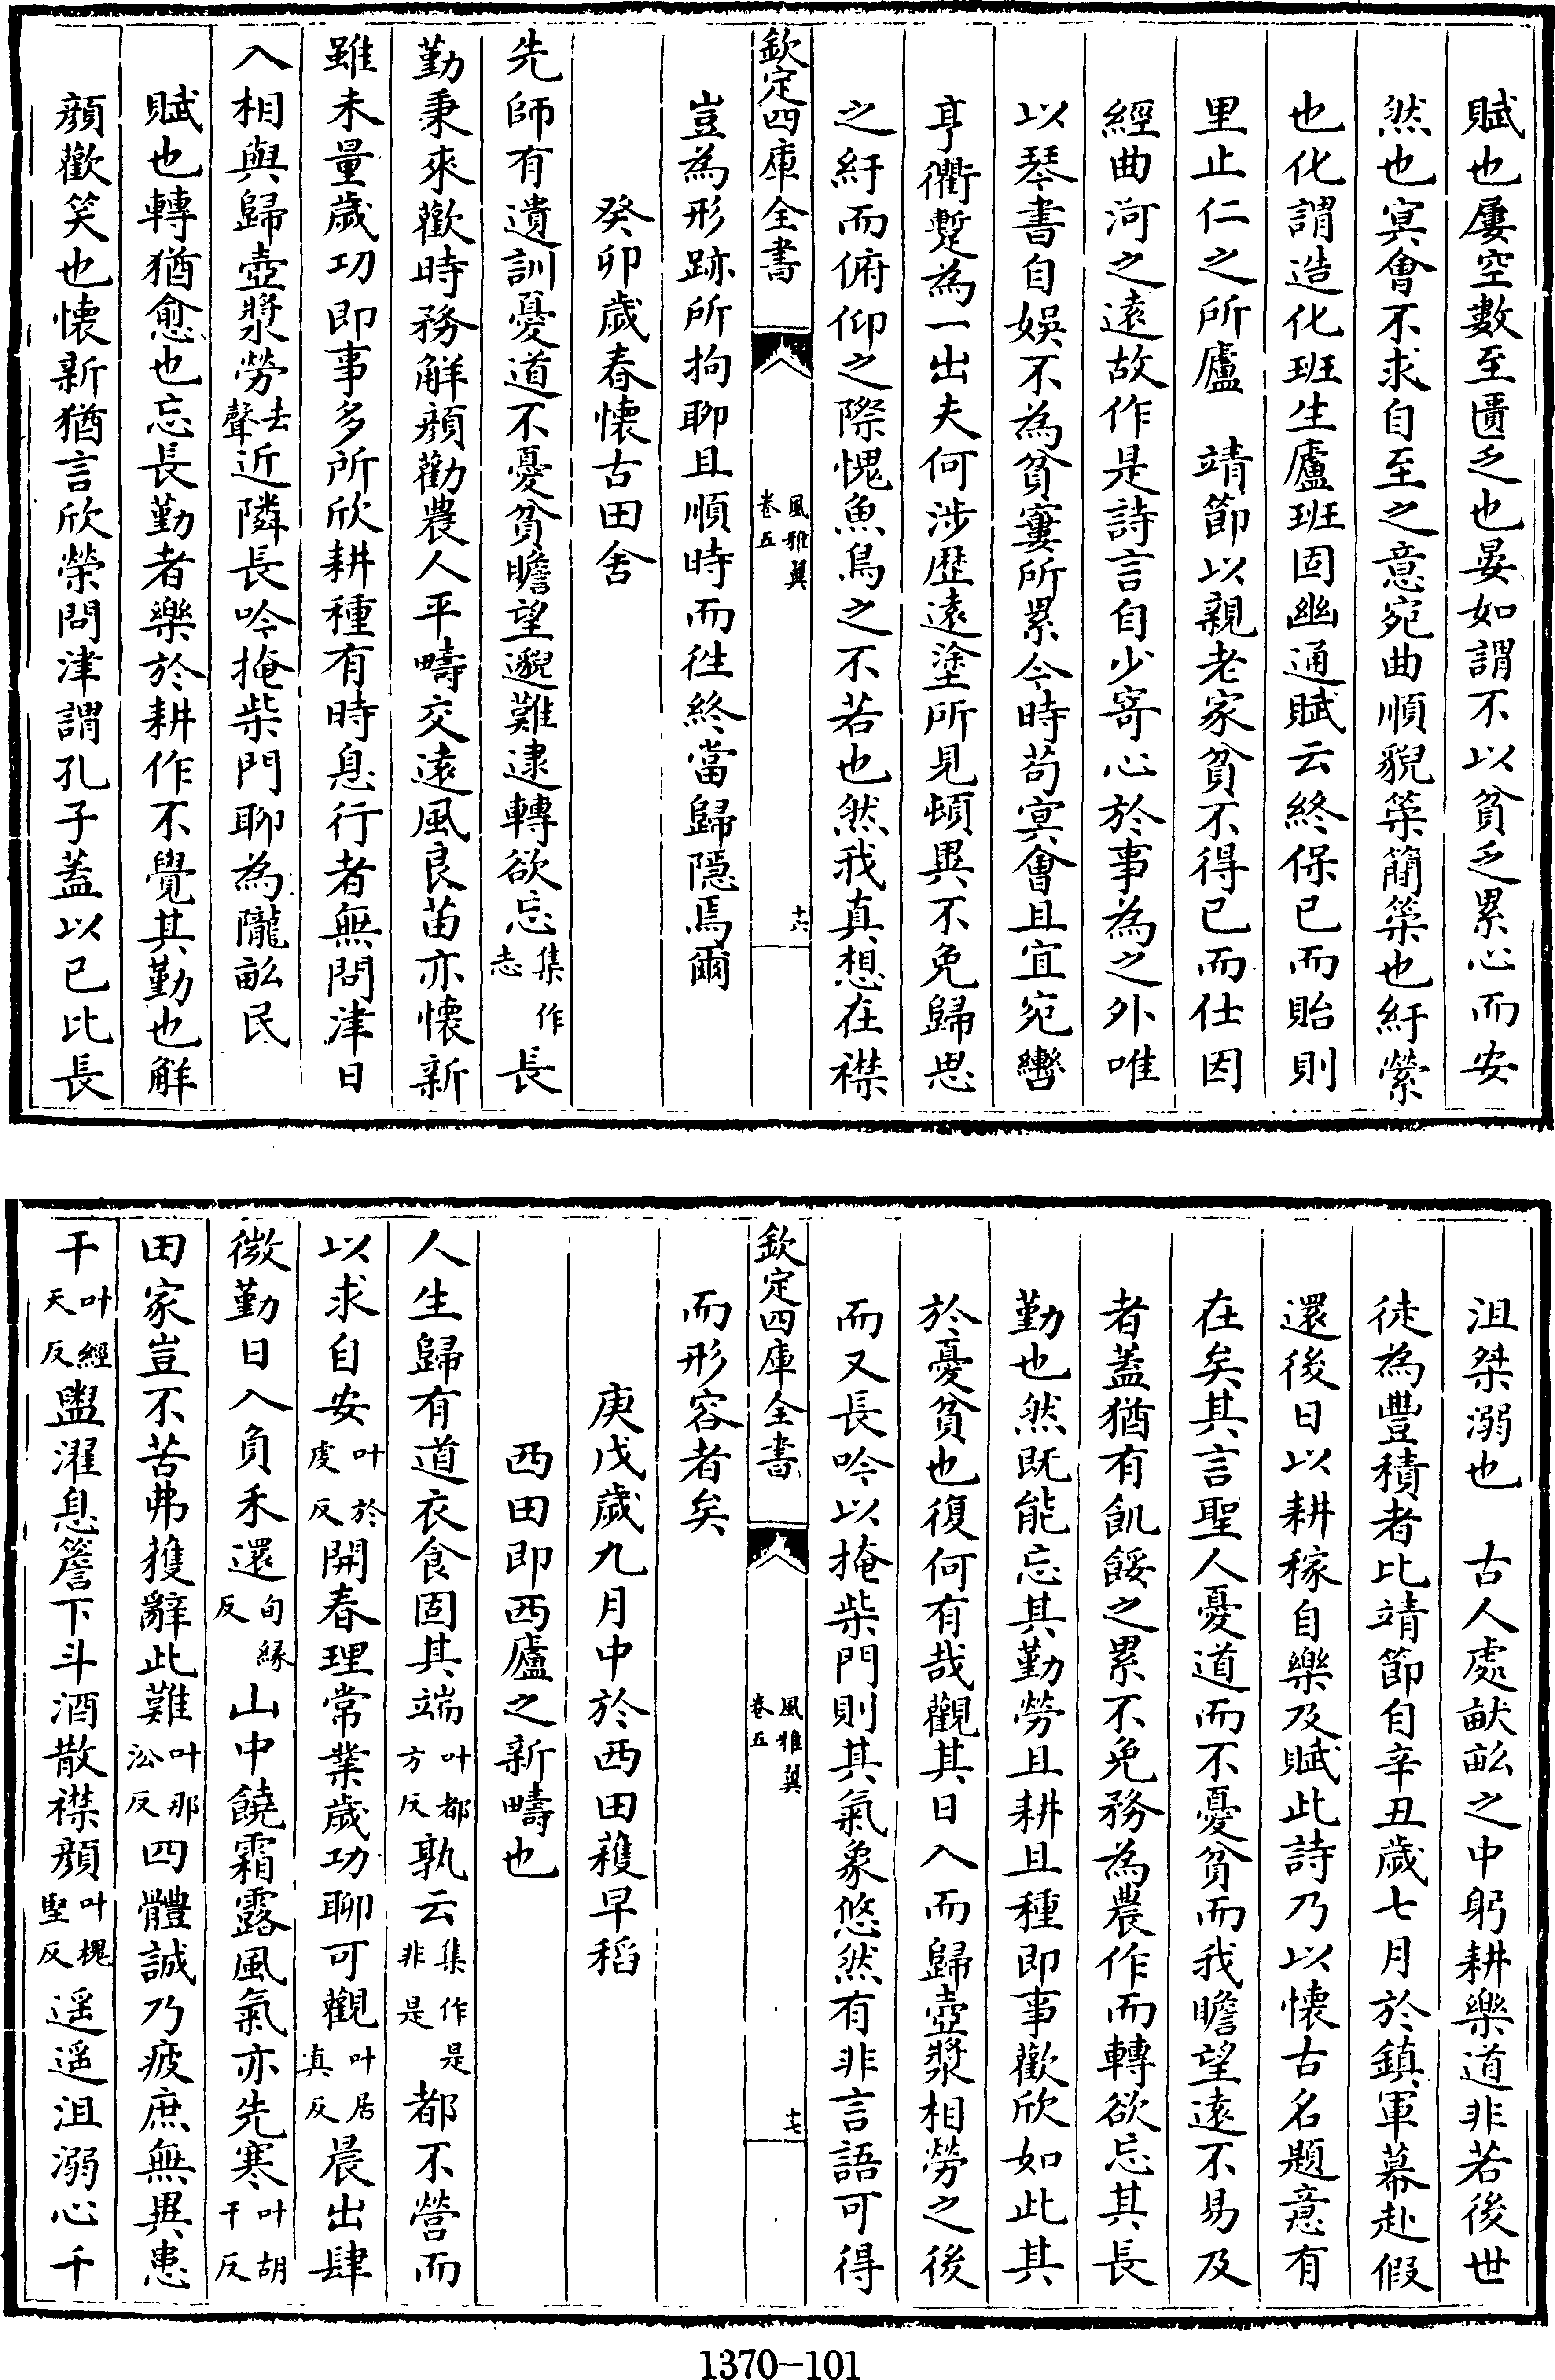 賦也屢空數至匱乏也晏如謂不以貧乏累心而安
然也㝠㑹不求自至之意宛曲順貌䇿簡䇿也紆縈
也化謂造化班生廬班固幽通賦云終保已而貽則
里止仁之所廬　靖節以親老家貧不得已而仕因
經曲河之遠故作是詩言自少寄心於事為之外唯
以琴書自娯不為貧寠所累今時茍㝠㑹且宜宛轡
亨衢蹔為一出夫何渉歴遠塗所見頓異不免歸思
之紆而俯仰之際愧魚鳥之不若也然我真想在襟
欽定四庫全書　風雅翼　卷五　十六
豈為形跡所拘聊且順時而徃終當歸隠焉爾
癸卯歲春懐古田舍
先師有遺訓憂道不憂貧瞻望邈難逮轉欲忘集作志長
勤秉來歡時務解顔勸農人平疇交遠風良苗亦懐新
雖未量歲功即事多所欣耕種有時息行者無問津日
入相與歸壺漿勞去聲近隣長吟掩柴門聊為隴畝民
賦也轉猶愈也忘長勤者樂於耕作不覺其勤也解
顔歡笑也懐新猶言欣榮問津謂孔子葢以已比長
沮桀溺也　古人處畎畝之中躬耕樂道非若後世
徒為豐積者比靖節自辛丑歲七月於鎮軍幕赴假
還後日以耕稼自樂及賦此詩乃以懐古名題意有
在矣其言聖人憂道而不憂貧而我瞻望遠不易及
者葢猶有飢餒之累不免務為農作而轉欲忘其長
勤也然既能忘其勤勞且耕且種即事歡欣如此其
於憂貧也復何有哉觀其日入而歸壺漿相勞之後
而又長吟以掩柴門則其氣象悠然有非言語可得
欽定四庫全書　風雅翼　卷五　十七
而形容者矣
庚戌歲九月中於西田穫早稻
西田即西廬之新疇也
人生歸有道衣食固其端叶都方反孰云集作是非是都不營而
以求自安叶於䖍反開春理常業歲功聊可觀叶居真反晨出肆
微勤日入負禾還旬縁反山中饒霜露風氣亦先寒叶胡干反
田家豈不苦弗獲辭此難叶那㳂反四體誠乃疲庶無異患
干叶經天反盥濯息簷下斗酒散襟顔叶檷堅反遥遥沮溺心千
1370-101